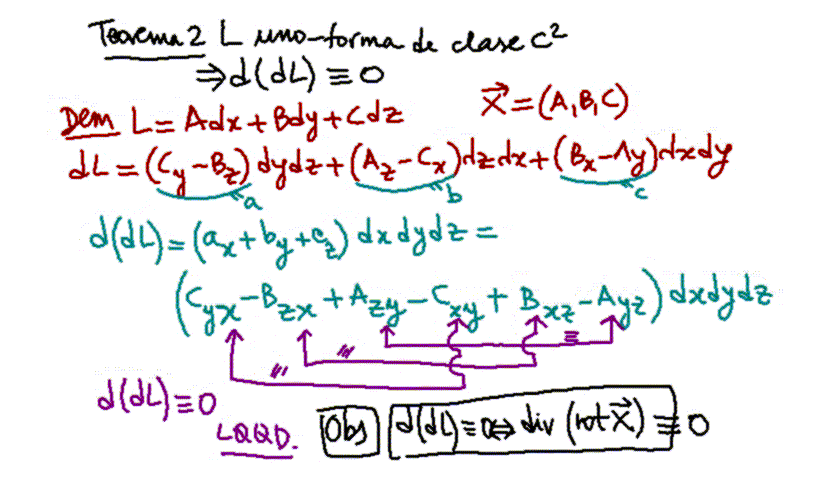 Teorema 2 L uno-forma de clase C²
⇒ d(dL) ≡ 0
Dem L = Adx + Bdy + Cdz X⃗ = (A, B, C)
dL = (C_y - B_z) dydz + (A_z - C_x) dzdx + (B_x - A_y) dxdy
a b c
d(dL) = (a_x + b_y + c_z) dxdydz =
(C_yx - B_zx + A_zy - C_xy + B_xz - A_yz) dxdydz
≡
d(dL) ≡ 0
LQQD. Obs d(dL) ≡ 0 ⇔ div (rot X⃗) ≡ 0